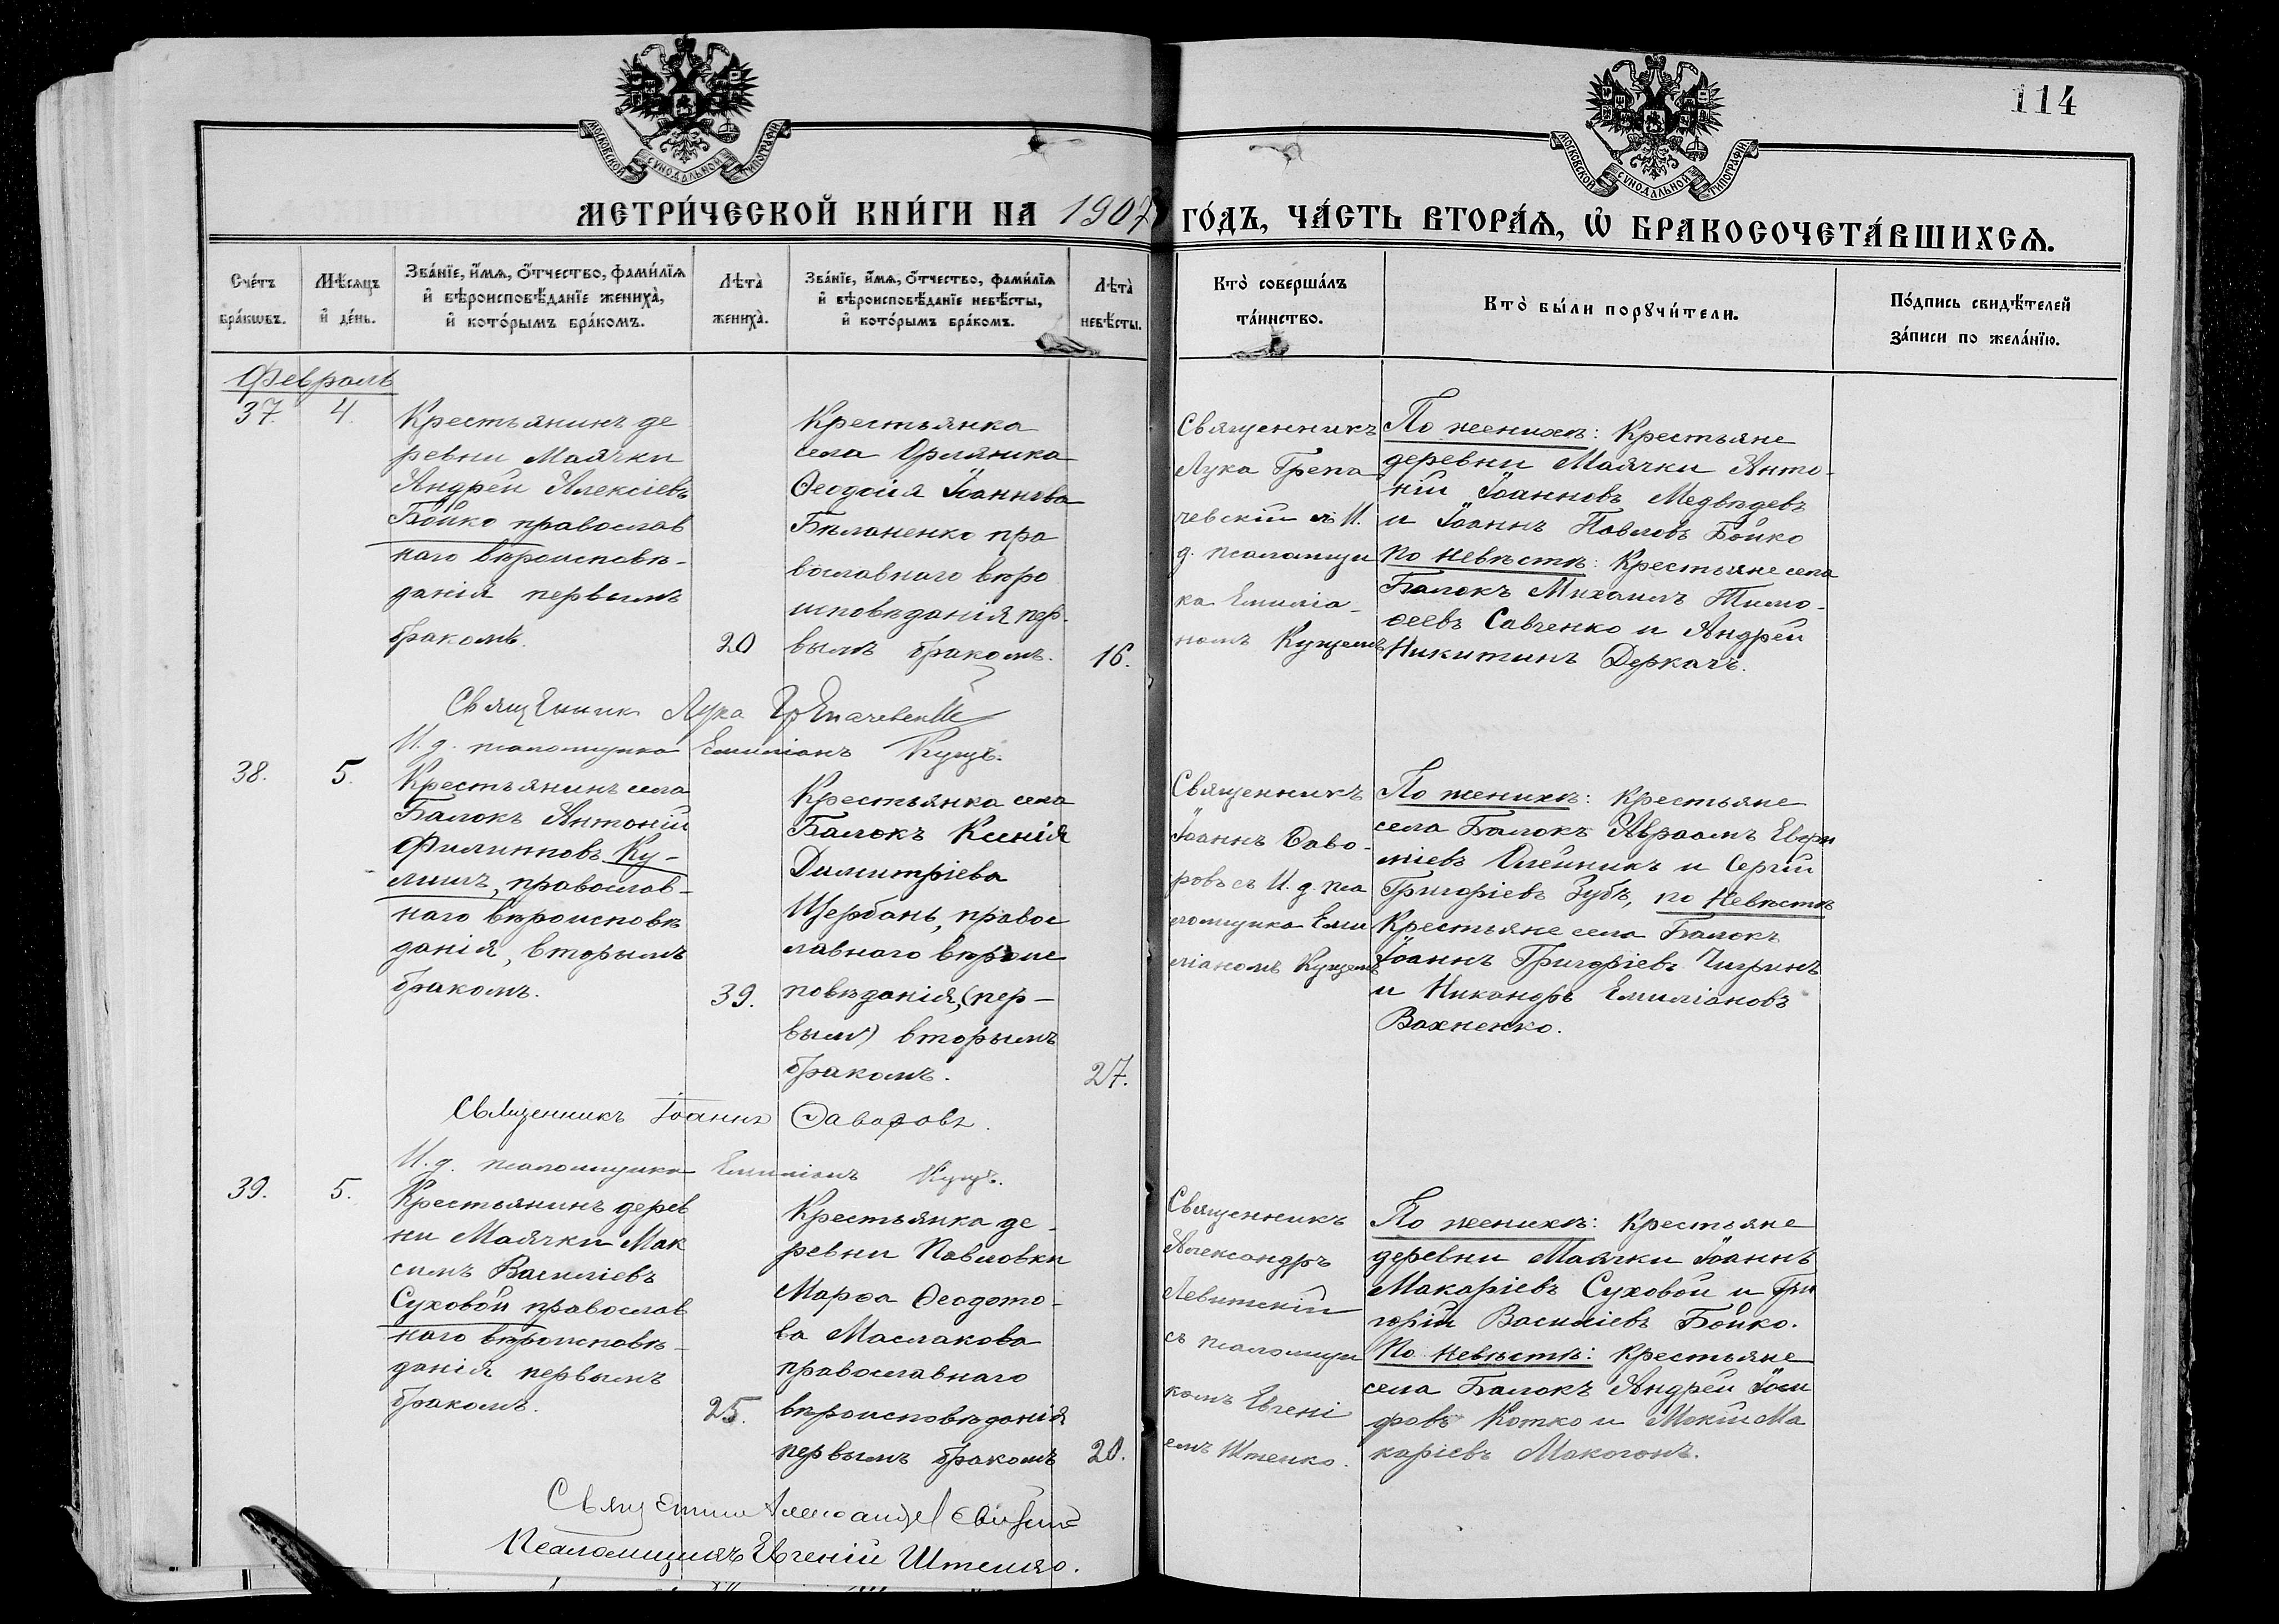 114
МОСКОВСКОЙ СѴНОДАЛЬНОЙ ТИПОГРАФІИ
МОСКОВСКОЙ СѴНОДАЛЬНОЙ ТИПОГРАФІИ
МЕТРИ́ЧЕСКОЙ КНИ́ГИ НА 1907 ГО́ДЪ, ЧА́СТЬ ВТОРА́Ѧ, Ѡ҆ БРАКОСОЧЕТА́ВШИХСѦ.
Сче́тъ
бра́кѡвъ.
Мѣ́сяцъ
и҆ де́нь.
Зва́нїе, и҆́мѧ, ѻ҆́тчество, фами́лїѧ
и҆ вѣроисповѣ́данїе жениха̀,
и҆ кото́рымъ бра́комъ.
Лѣта̀
жениха̀.
Зва́нїе, и҆́мѧ, ѻ҆́тчество, фами́лїѧ
и҆ вѣроисповѣ́данїе невѣ́сты,
и҆ кото́рымъ бра́комъ.
Лѣта̀
невѣ́сты.
Кто̀ соверша́лъ
та́инство.
Кто̀ бы́ли порꙋчи́тели.
По́дпись свидѣ́телей
за́писи по жела́нїю.
Февраль
37. 4.
Крестьянинъ де
ревни Маячки
Андрей Алексіевъ
Бойко православ
наго вѣроисповѣ-
данія первымъ
бракомъ.
20
Крестьянка
села Орлянка
Ѳеодосія Іоаннова
Бѣланенко пра
вославнаго вѣро
исповѣданія пер-
вымъ бракомъ.
16.
Священникъ
Лука Грепа
чевскій съ И.
д. псаломщи
ка Емиліа-
номъ Куцемъ
По женихѣ: Крестьяне
деревни Маячки Анто-
ній Іоанновъ Медвѣдевъ
и Іоаннъ Павловъ Бойко
По невѣстѣ: Крестьяне села
Балокъ Михаилъ Тимо-
ѳеевъ Савченко и Андрей
Никитинъ Деркачъ.
Священник Лука Грепачевскій
И. д. псаломщика Емиліанъ Куцъ.
38. 5.
Крестьянинъ села
Балокъ Антоній
Филипповъ Ку-
лишъ, православ-
наго вѣроисповѣ
данія, вторымъ
бракомъ.
39.
Крестьянка села
Балокъ Ксенія
Димитріева
Щербань, правос
лавнаго вѣроис
повѣданія, (пер-
вым) вторымъ
бракомъ.
27.
Священникъ
Іоаннъ Ѳаво-
ровъ съ И. д. пса
ломщика Еми
ліаномъ Куцемъ
По женихѣ: Крестьяне
села Балокъ Авраамъ Евфи
міевъ Олейникъ и Сергій
Григоріевъ Зубъ, по невѣстѣ
Крестьяне села Балокъ
Іоаннъ Григоріевъ Чигринъ
и Никандръ Емиліановъ
Вахненко.
Священникъ Іоаннъ Ѳаворовъ.
И. д. псаломщика Емиліанъ Куцъ.
39. 5.
Крестьянинъ дерев
ни Маячки Мак
симъ Василіевъ
Суховой православ
наго вѣроисповѣ-
данія первымъ
бракомъ.
25.
Крестьянка де-
ревни Павловки
Марѳа Ѳеодото-
ва Маслакова
православнаго
вѣроисповѣданія
первымъ бракомъ
20.
Священникъ
Александръ
Левитскій
съ псаломщи
комъ Евгені
емъ Штепко.
По женихѣ: Крестьяне
деревни Маячки Іоаннъ
Макаріевъ Суховой и Гри
горій Василіевъ Бойко.
По невѣстѣ: Крестьяне
села Балокъ Андрей Іоси
фовъ Котко и Мокій Ма
каріевъ Макогонъ.
Псаломщикъ Евгеній Штепко.